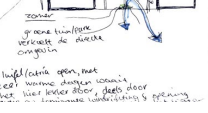 zomer
groene tuin/park
verkoelt de directe
omgevin
luifel/atria open, met
zeer warme dagen waait
het hier lekker door, deels door
opening